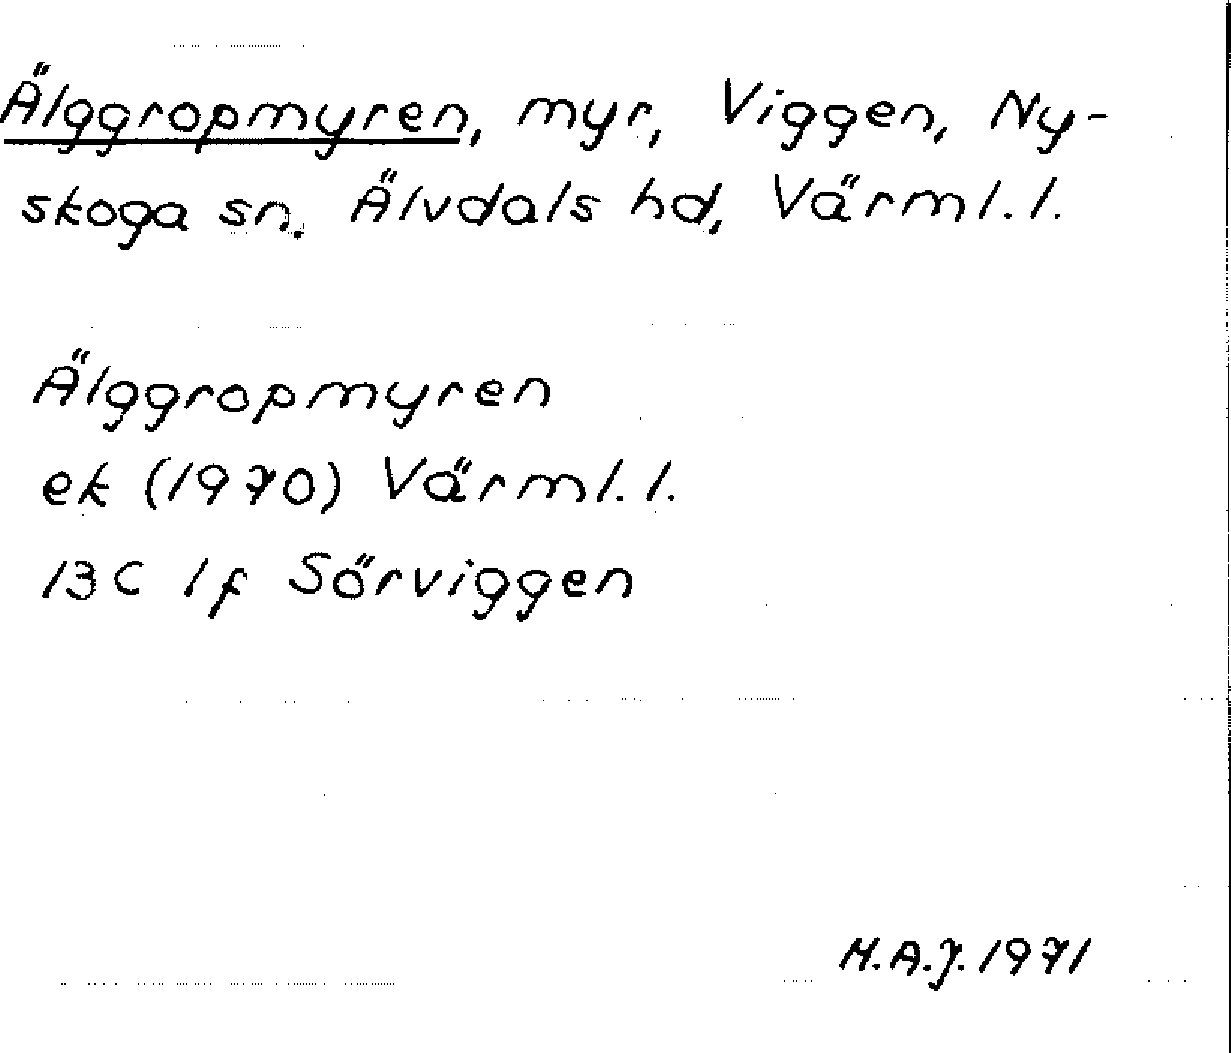 Älggropmyren, myr, Viggen, Ny-
skoga sn. Älvdals hd, Värml. l.
Älggropmyren
ek (1970) Värml. l.
13C 1f Sörviggen
H.A.J. 1971